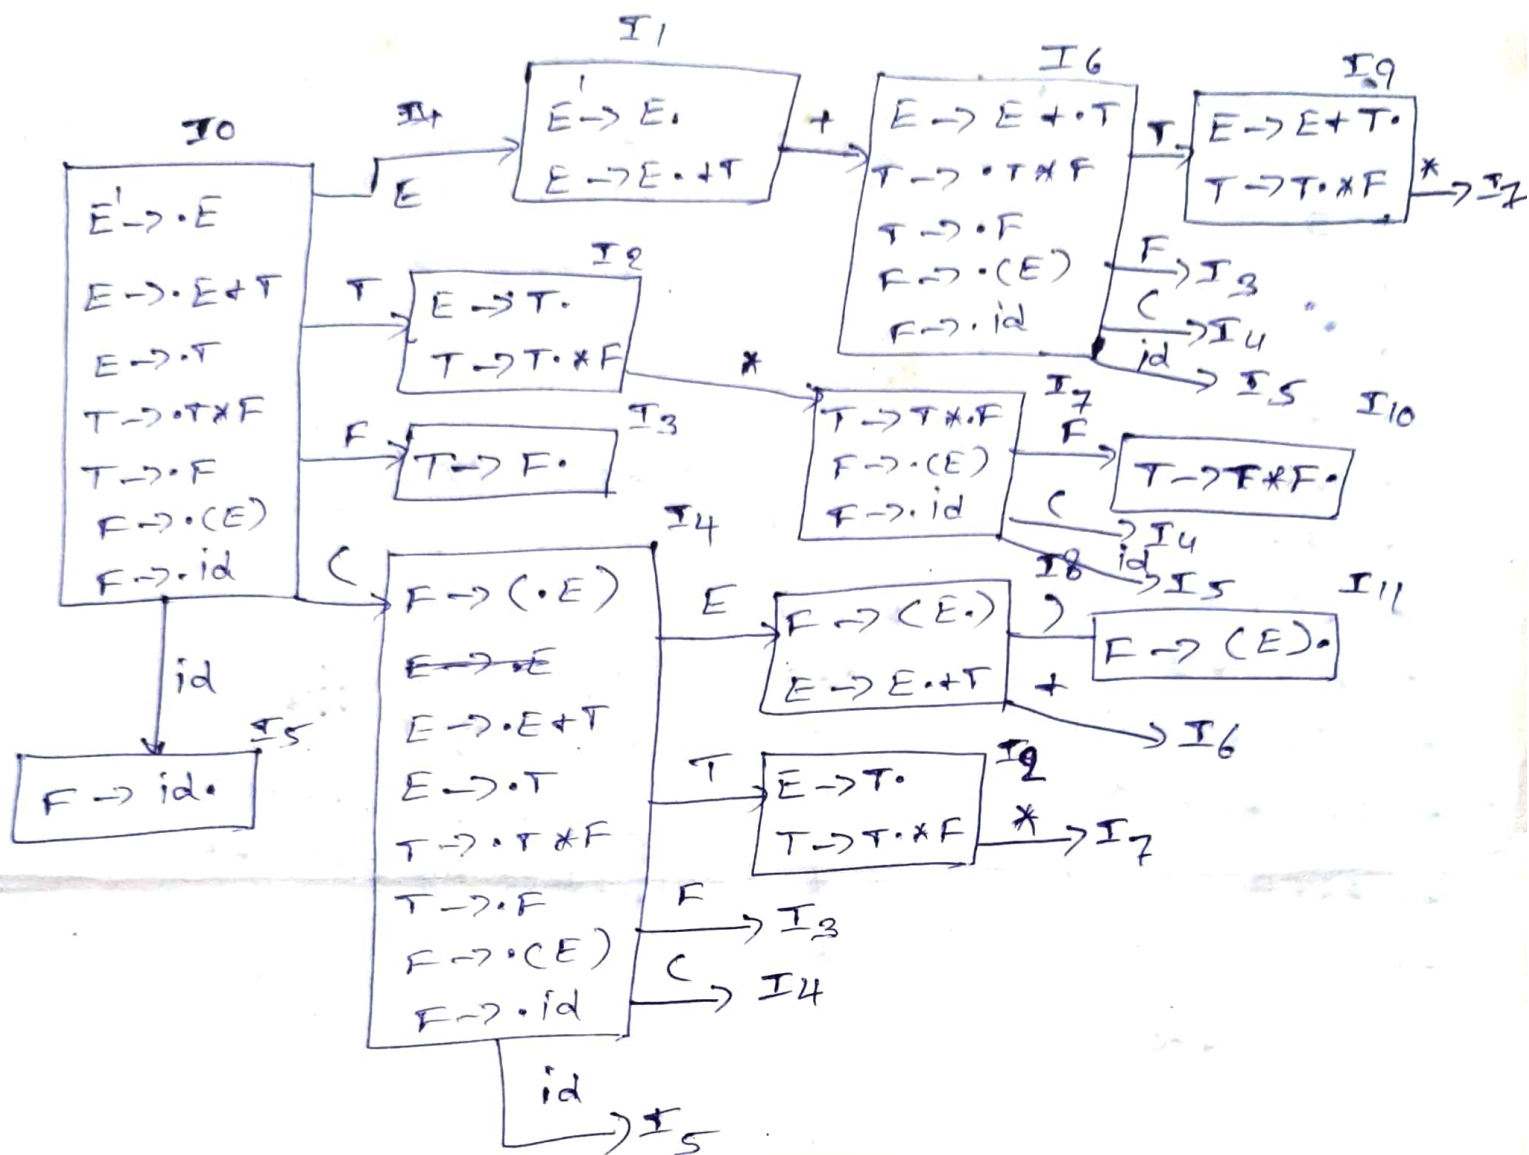 I0
E' -> .E
E -> .E+T
E -> .T
T -> .T*F
T -> .F
F -> .(E)
F -> .id
E
I1
E' -> E.
E -> E.+T
+
I6
E -> E+.T
T -> .T*F
T -> .F
F -> .(E)
F -> .id
T
I9
E -> E+T.
T -> T.*F
* -> I7
F -> I3
( -> I4
id -> I5
T
I2
E -> T.
T -> T.*F
*
I7
T -> T*.F
F -> .(E)
F -> .id
F
I10
T -> T*F.
( -> I4
id -> I5
F
I3
T -> F.
(
I4
F -> (.E)
E -> .E
E -> .E+T
E -> .T
T -> .T*F
T -> .F
F -> .(E)
F -> .id
E
I8
F -> (E.)
E -> E.+T
)
I11
F -> (E).
+ -> I6
T
I2
E -> T.
T -> T.*F
* -> I7
F -> I3
( -> I4
id -> I5
id
I5
F -> id.